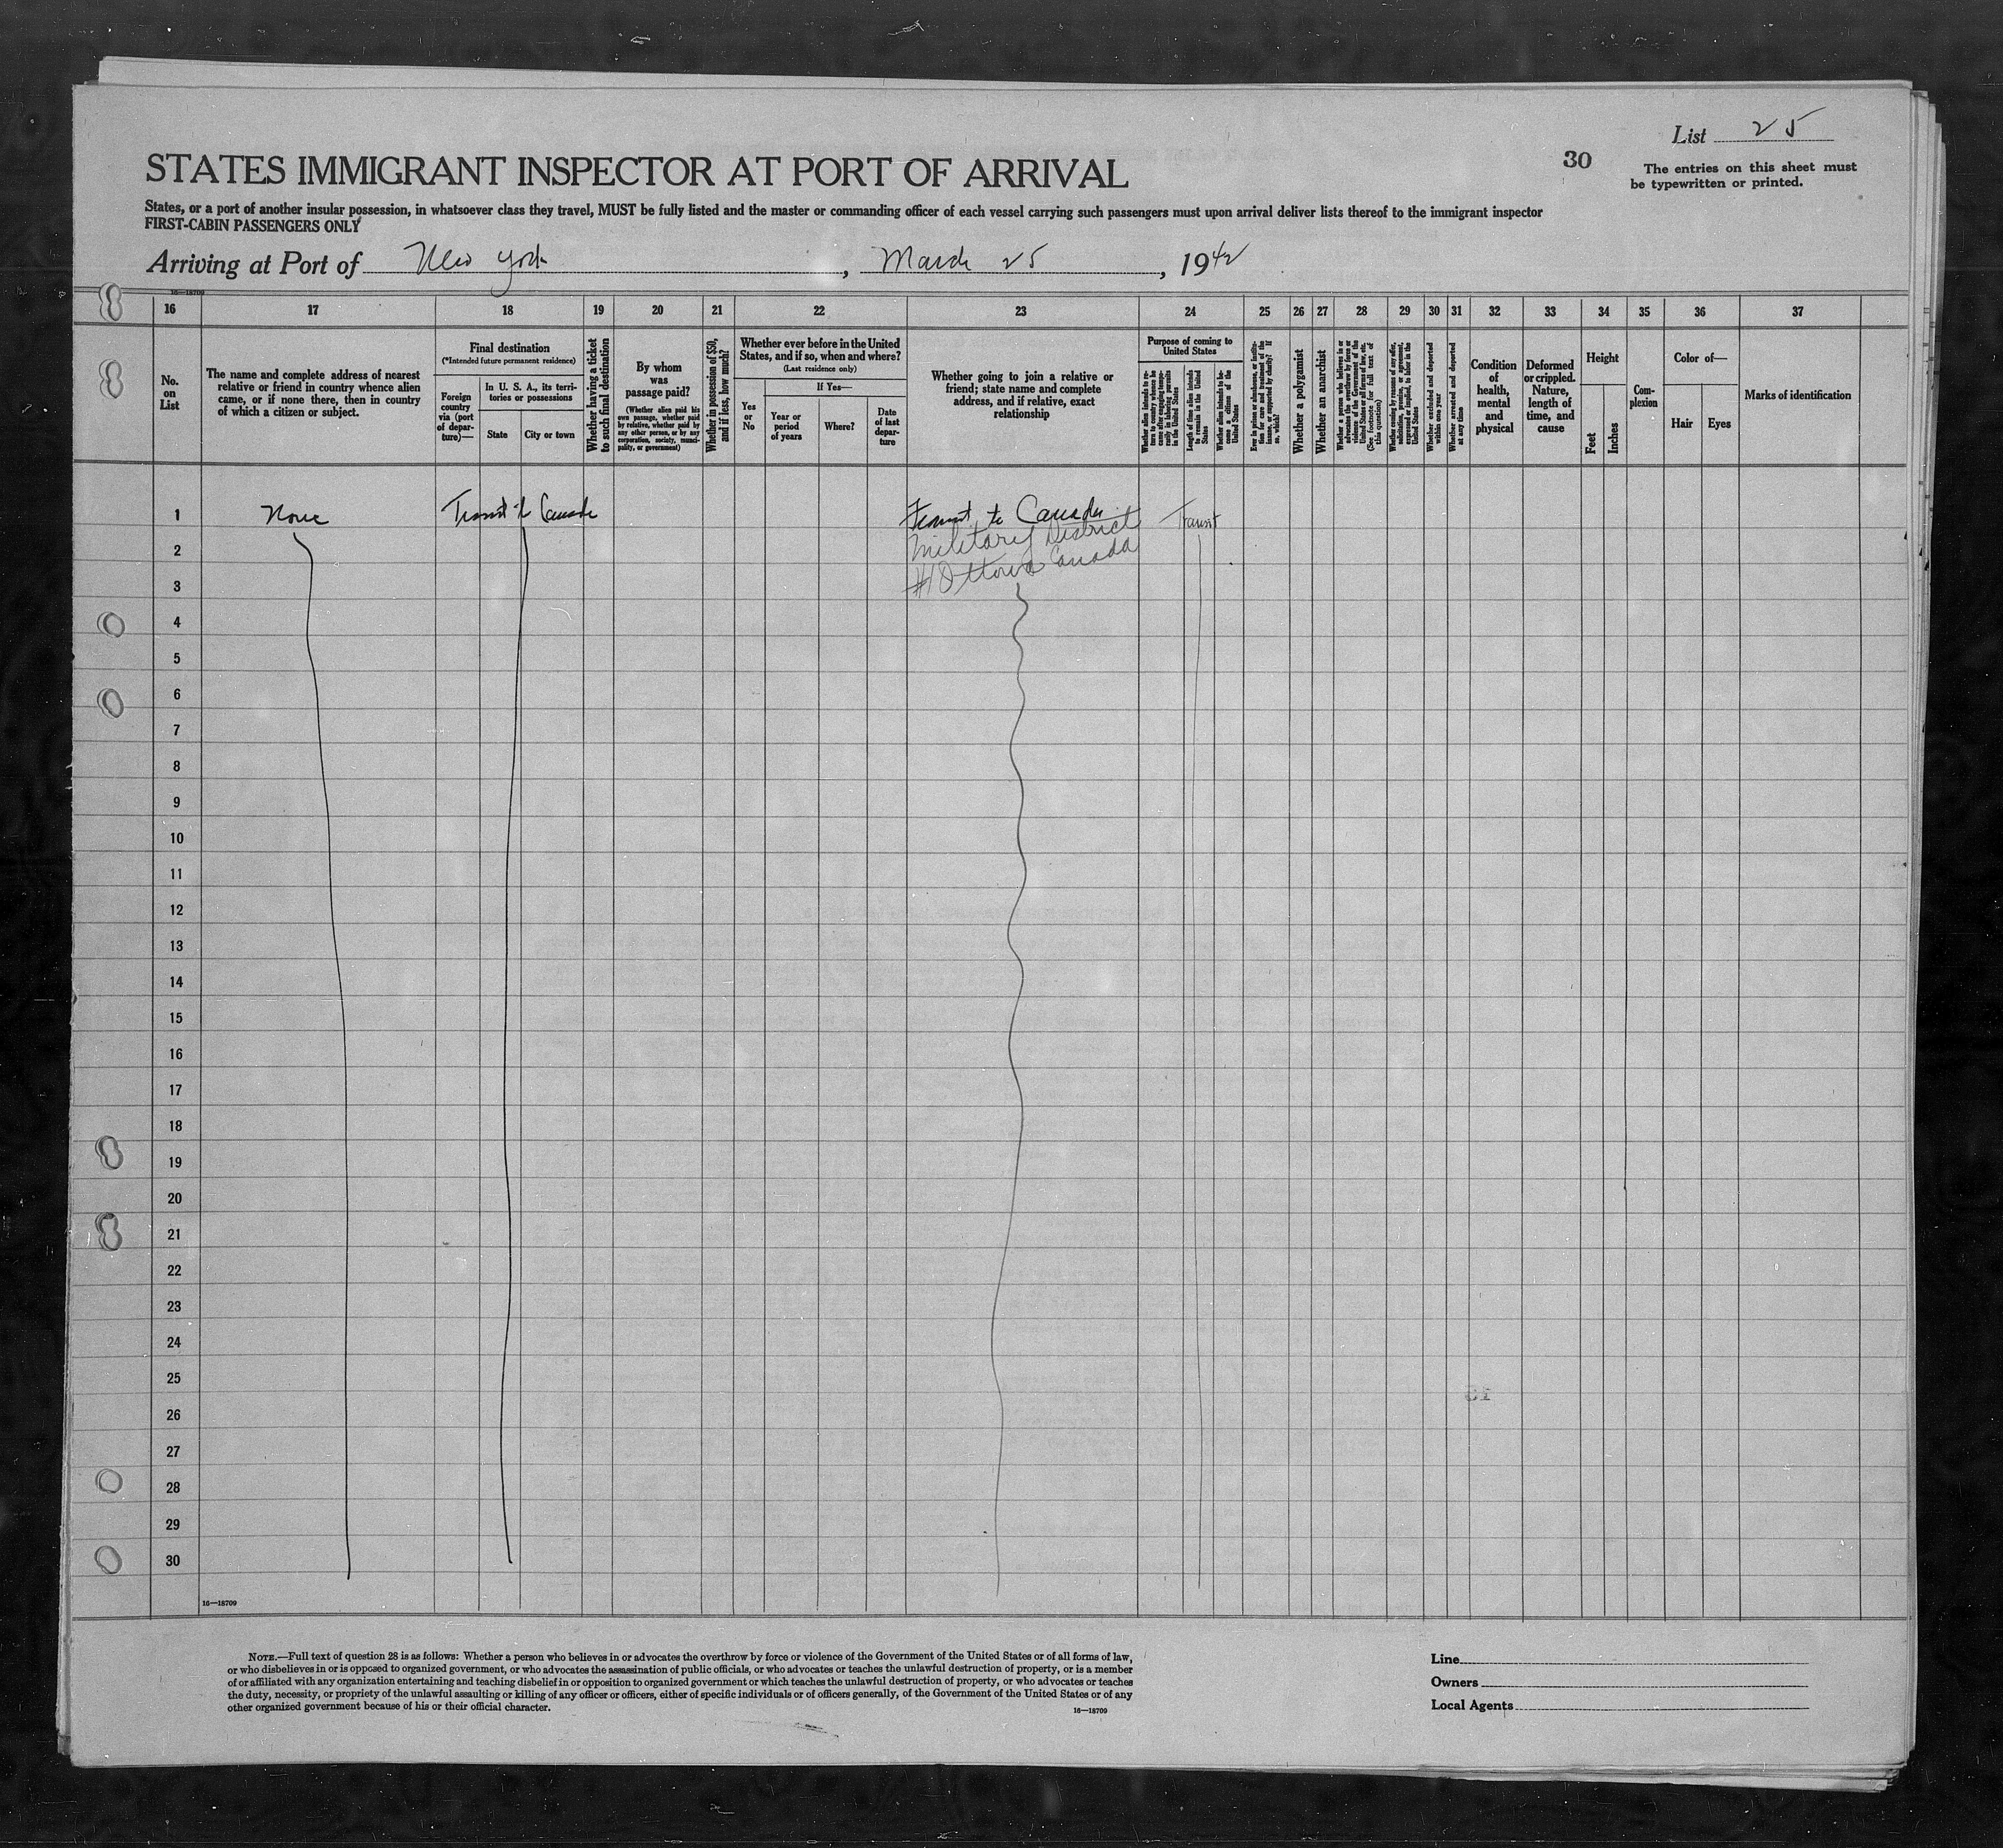 List 25
30
The entries on this sheet must
be typewritten or printed.
STATES IMMIGRANT INSPECTOR AT PORT OF ARRIVAL
States, or a port of another insular possession, in whatsoever class they travel, MUST be fully listed and the master or commanding officer of each vessel carrying such passengers must upon arrival deliver lists thereof to the immigrant inspector
FIRST-CABIN PASSENGERS ONLY
Arriving at Port of New York, March 25, 1942
16—18709
16 17 18 19 20 21 22 23 24 25 26 27 28 29 30 31 32 33 34 35 36 37
No. on List
The name and complete address of nearest relative or friend in country whence alien came, or if none there, then in country of which a citizen or subject.
Final destination
(*Intended future permanent residence)
Foreign country via (port of departure)—
In U. S. A., its territories or possessions
State
City or town
Whether having a ticket to such final destination
By whom was passage paid?
(Whether alien paid his own passage, whether paid by relative, whether paid by any other person, or by any corporation, society, municipality, or government)
Whether in possession of $50, and if less, how much?
Whether ever before in the United States, and if so, when and where?
(Last residence only)
Yes or No
If Yes—
Year or period of years
Where?
Date of last departure
Whether going to join a relative or friend; state name and complete address, and if relative, exact relationship
Purpose of coming to United States
Whether alien intends to return to country whence he came after engaging temporarily in laboring pursuits in the United States
Length of time alien intends to remain in the United States
Whether alien intends to become a citizen of the United States
Ever in prison or almshouse, or institution for care and treatment of the insane, or supported by charity? If so, which?
Whether a polygamist
Whether an anarchist
Whether a person who believes in or advocates the overthrow by force or violence of the Government of the United States or all forms of law, etc. (See footnote for full text of this question)
Whether coming by reason of any offer, solicitation, promise, or agreement, expressed or implied, to labor in the United States
Whether excluded and deported within one year
Whether arrested and deported at any time
Condition of health, mental and physical
Deformed or crippled. Nature, length of time, and cause
Height
Feet
Inches
Complexion
Color of—
Hair
Eyes
Marks of identification
1 None Transit to Canada Transit to Canada Transit
2 Military District
3 #1 Ottowa Canada
4
5
6
7
8
9
10
11
12
13
14
15
16
17
18
19
20
21
22
23
24
25
26
27
28
29
30
16—18709
NOTE.—Full text of question 28 is as follows: Whether a person who believes in or advocates the overthrow by force or violence of the Government of the United States or of all forms of law,
or who disbelieves in or is opposed to organized government, or who advocates the assassination of public officials, or who advocates or teaches the unlawful destruction of property, or is a member
of or affiliated with any organization entertaining and teaching disbelief in or opposition to organized government or which teaches the unlawful destruction of property, or who advocates or teaches
the duty, necessity, or propriety of the unlawful assaulting or killing of any officer or officers, either of specific individuals or of officers generally, of the Government of the United States or of any
other organized government because of his or their official character.
16—18709
Line
Owners
Local Agents